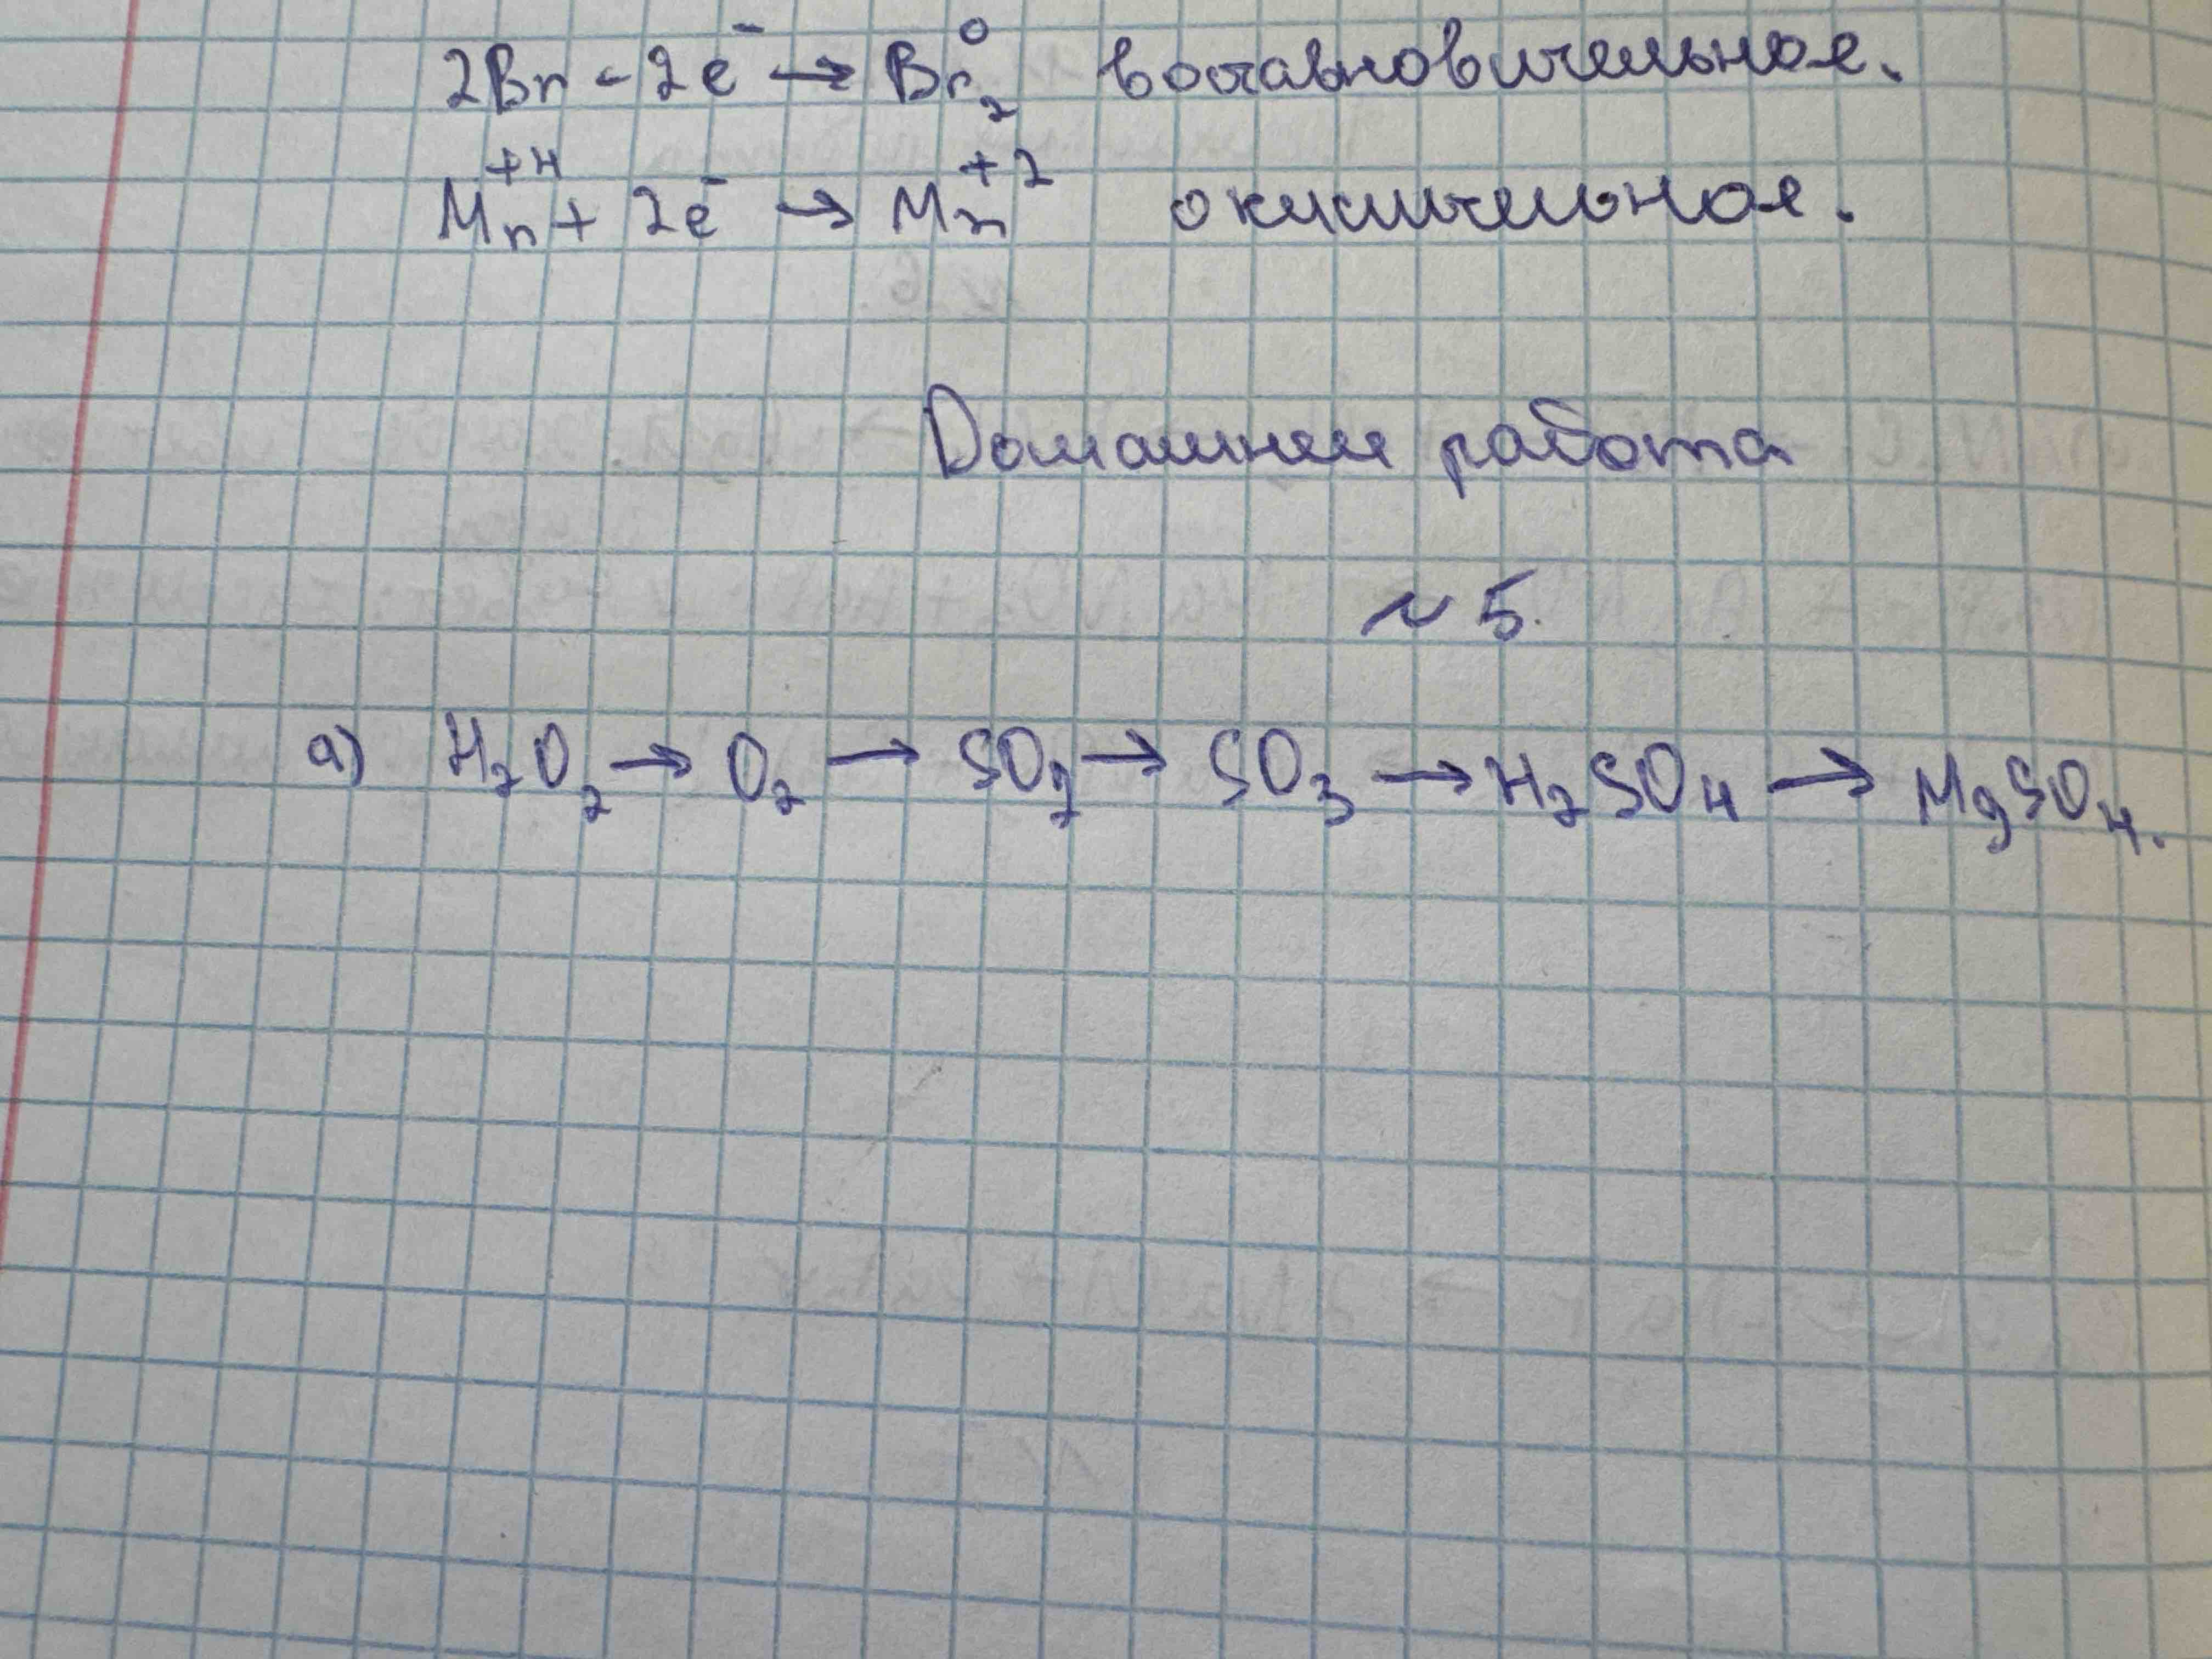 2Br - 2e⁻ → Br₂⁰ восстановительное.
Mn⁺⁴ + 2e⁻ → Mn⁺² окислительное.
Домашнея работа
№ 5.
а) H₂O₂ → O₂ → SO₂ → SO₃ → H₂SO₄ → MgSO₄.